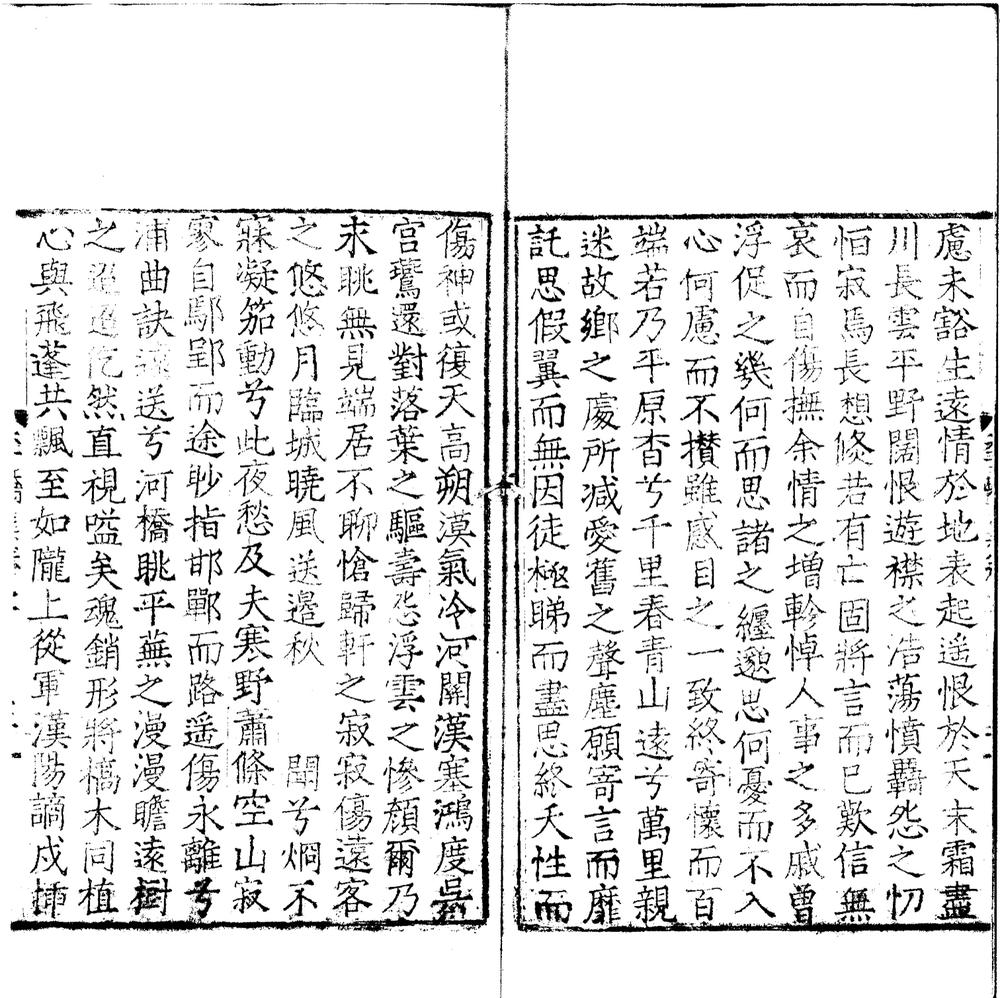 慮未豁生遠情於地表起遥恨於天末霜盡
川長雲平野闊恨遊襟之浩蕩憤羈怨之忉
怕寂焉長想倏若有亡固將言而已歎信無
哀而自傷撫余情之増軫悼人事之多戚曽
浮促之幾何而思諸之纏邈思何憂而不入
心何慮而不攅雖感目之一致終寄懷而百
端若乃平原杳兮千里春青山遠兮萬里親
迷故鄉之處所減愛舊之聲塵願寄言而靡
託思假翼而無因徒極睇而盡思終夭性而
傷神或復天高朔漠氣冷河關漢塞鴻度吳
宮鷰還對落葉之驅壽悲浮雲之慘顔爾乃
求眺無見端居不聊愴歸軒之寂寂傷遠客
之悠悠月臨城曉風送邊秋　閨兮烱不
寐凝笳動兮此夜愁及夫寒野蕭條空山寂
寥自鄢郢而途眇指邯鄲而路遥傷永離兮
浦曲訣遠送兮河橋眺平蕪之漫漫瞻遠樹
之迢迢忔然直視嗌矣魂銷形將槁木同植
心與飛蓬共飄至如隴上從軍漢陽謫戍揷